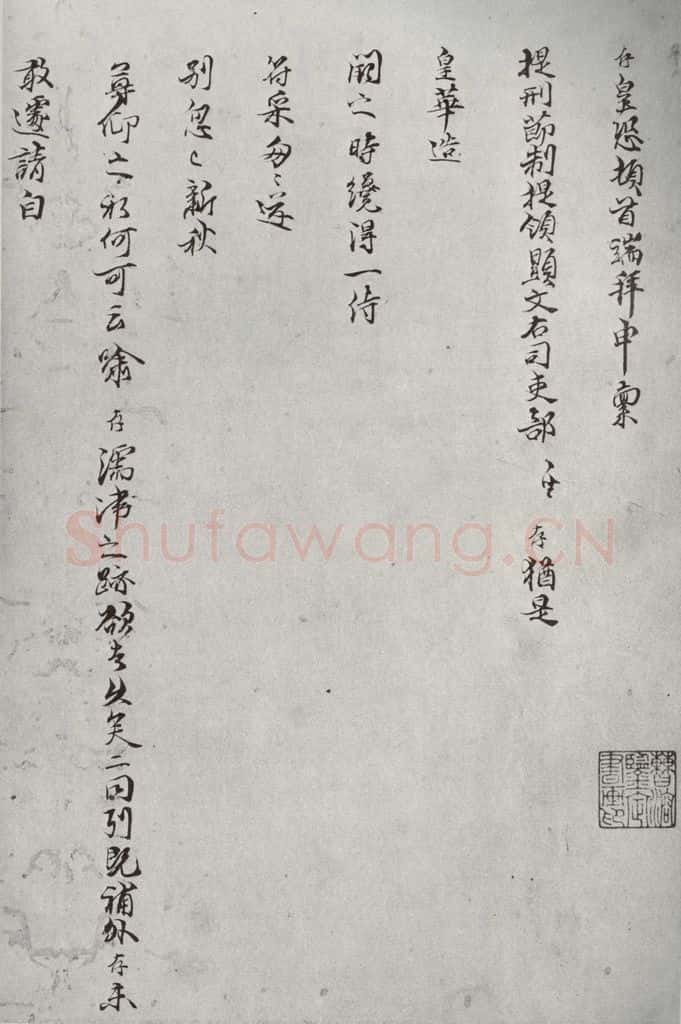 存皇恐頓首端拜申稟
提刑節制提領顯文右司吏部 存猶是
皇華造
闕之時纔得一侍
符采匆匆送
別忽忽新秋
尊仰之私何可云喻存濡滯之跡欲去久矣二同列既補外存未
敢遽請自
Shufawang.CN